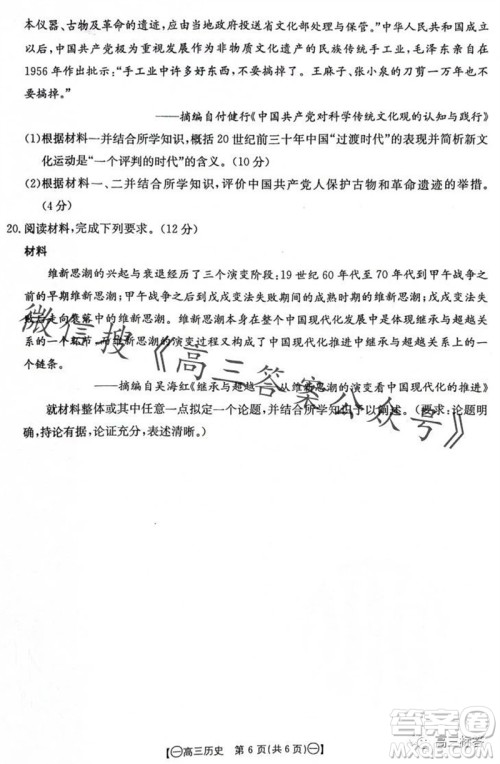 本仪器、古物及革命的遗迹，应由当地政府投送省文化部处理与保管。”中华人民共和国成立
以后，中国共产党在保护非物质文化遗产的民族传统手工业方面，起了重要作用，毛泽东在
1956年作出批示：“手工业中许多好东西，不要搞掉了。王麻子、张小泉的刀剪一万年也不
要搞掉。”
——摘编自付健行《中国共产党对科学传统文化观的认知与践行》
(1)根据材料一并结合所学知识，概括20世纪前三十年中国“过渡时代”的表现并简析新文
化运动是“一个评判的时代”的含义。(10分)
(2)根据材料一、二并结合所学知识，评价中国共产党人保护古物和革命遗迹的举措。
(4分)
20.阅读材料，完成下列要求。(12分)
材料
维新思潮的兴起与衰退经历了三个演变阶段：19世纪60年代至70年代到甲午战争之
前的早期维新思潮；甲午战争之后到戊戌变法失败期间的戊戌变法思潮；戊戌变法失败之
后走向落幕的维新思潮。维新思潮自身在整个中国现代化发展中是体现继承与超越关
系的一个环节，而维新思潮的演变过程又构成了中国现代化推进中继承与超越关系上的一
个链条。
——摘编自吴海红《继承与超越——从维新思潮的演变看中国现代化的推进》
就材料整体或其中任意一点拟定一个论题，并结合所学知识予以阐述。(要求：论题明
确，持论有据，论证充分，表述清晰。)
微信搜《高三答案公众号》
高三历史 第6页(共6页)
答案圈
高三标答